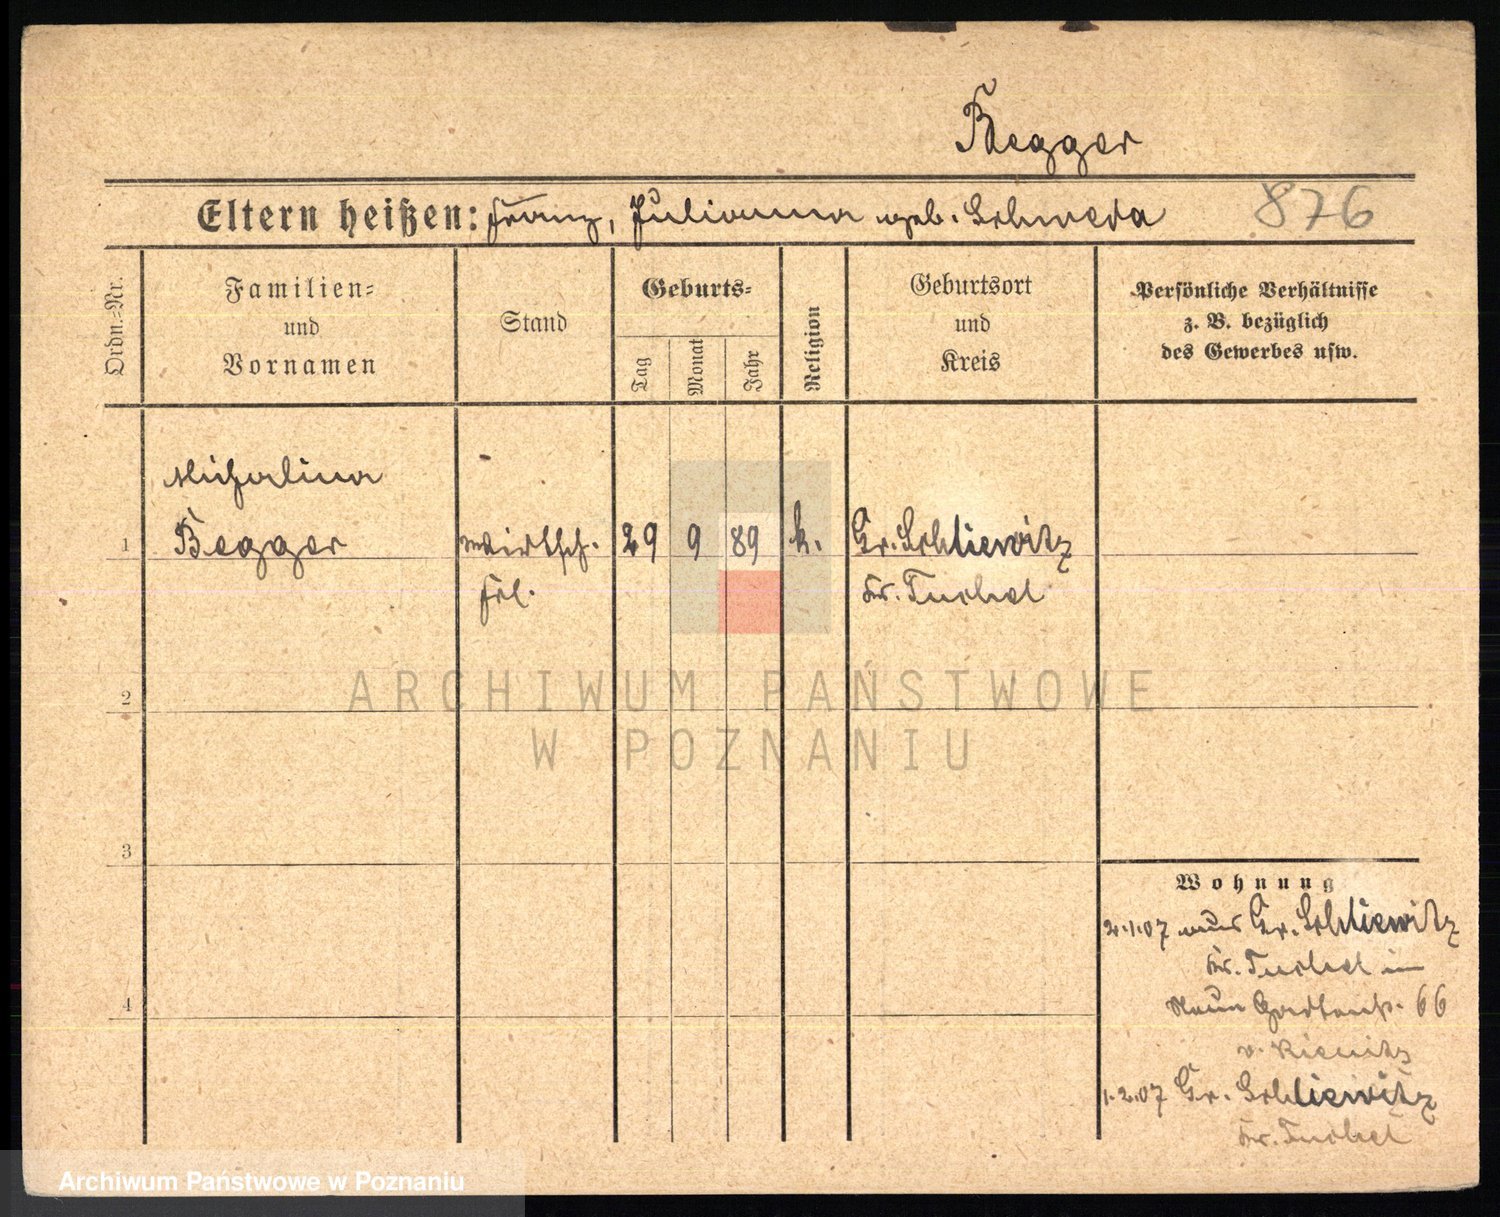 Begger
Eltern heißen: Franz, Julianna geb. Schweda
876
Ordn.-Nr.
Familien-
und
Vornamen
Stand
Geburts-
Tag
Monat
Jahr
Religion
Geburtsort
und
Kreis
Persönliche Verhältnisse
z. B. bezüglich
des Gewerbes usw.
Michalina
1 Begger wirtsch. 29 9 89 k. Gr. Schliewitz
Frl. Kr. Tuchel
2
ARCHIWUM PAŃSTWOWE
W POZNANIU
3
Wohnung
2.1.07 aus Gr. Schliewitz
Kr. Tuchel in
4
Neue Gartenstr. 66
v. Kienitz
1.2.07 Gr. Schliewitz
Kr. Tuchel
Archiwum Państwowe w Poznaniu